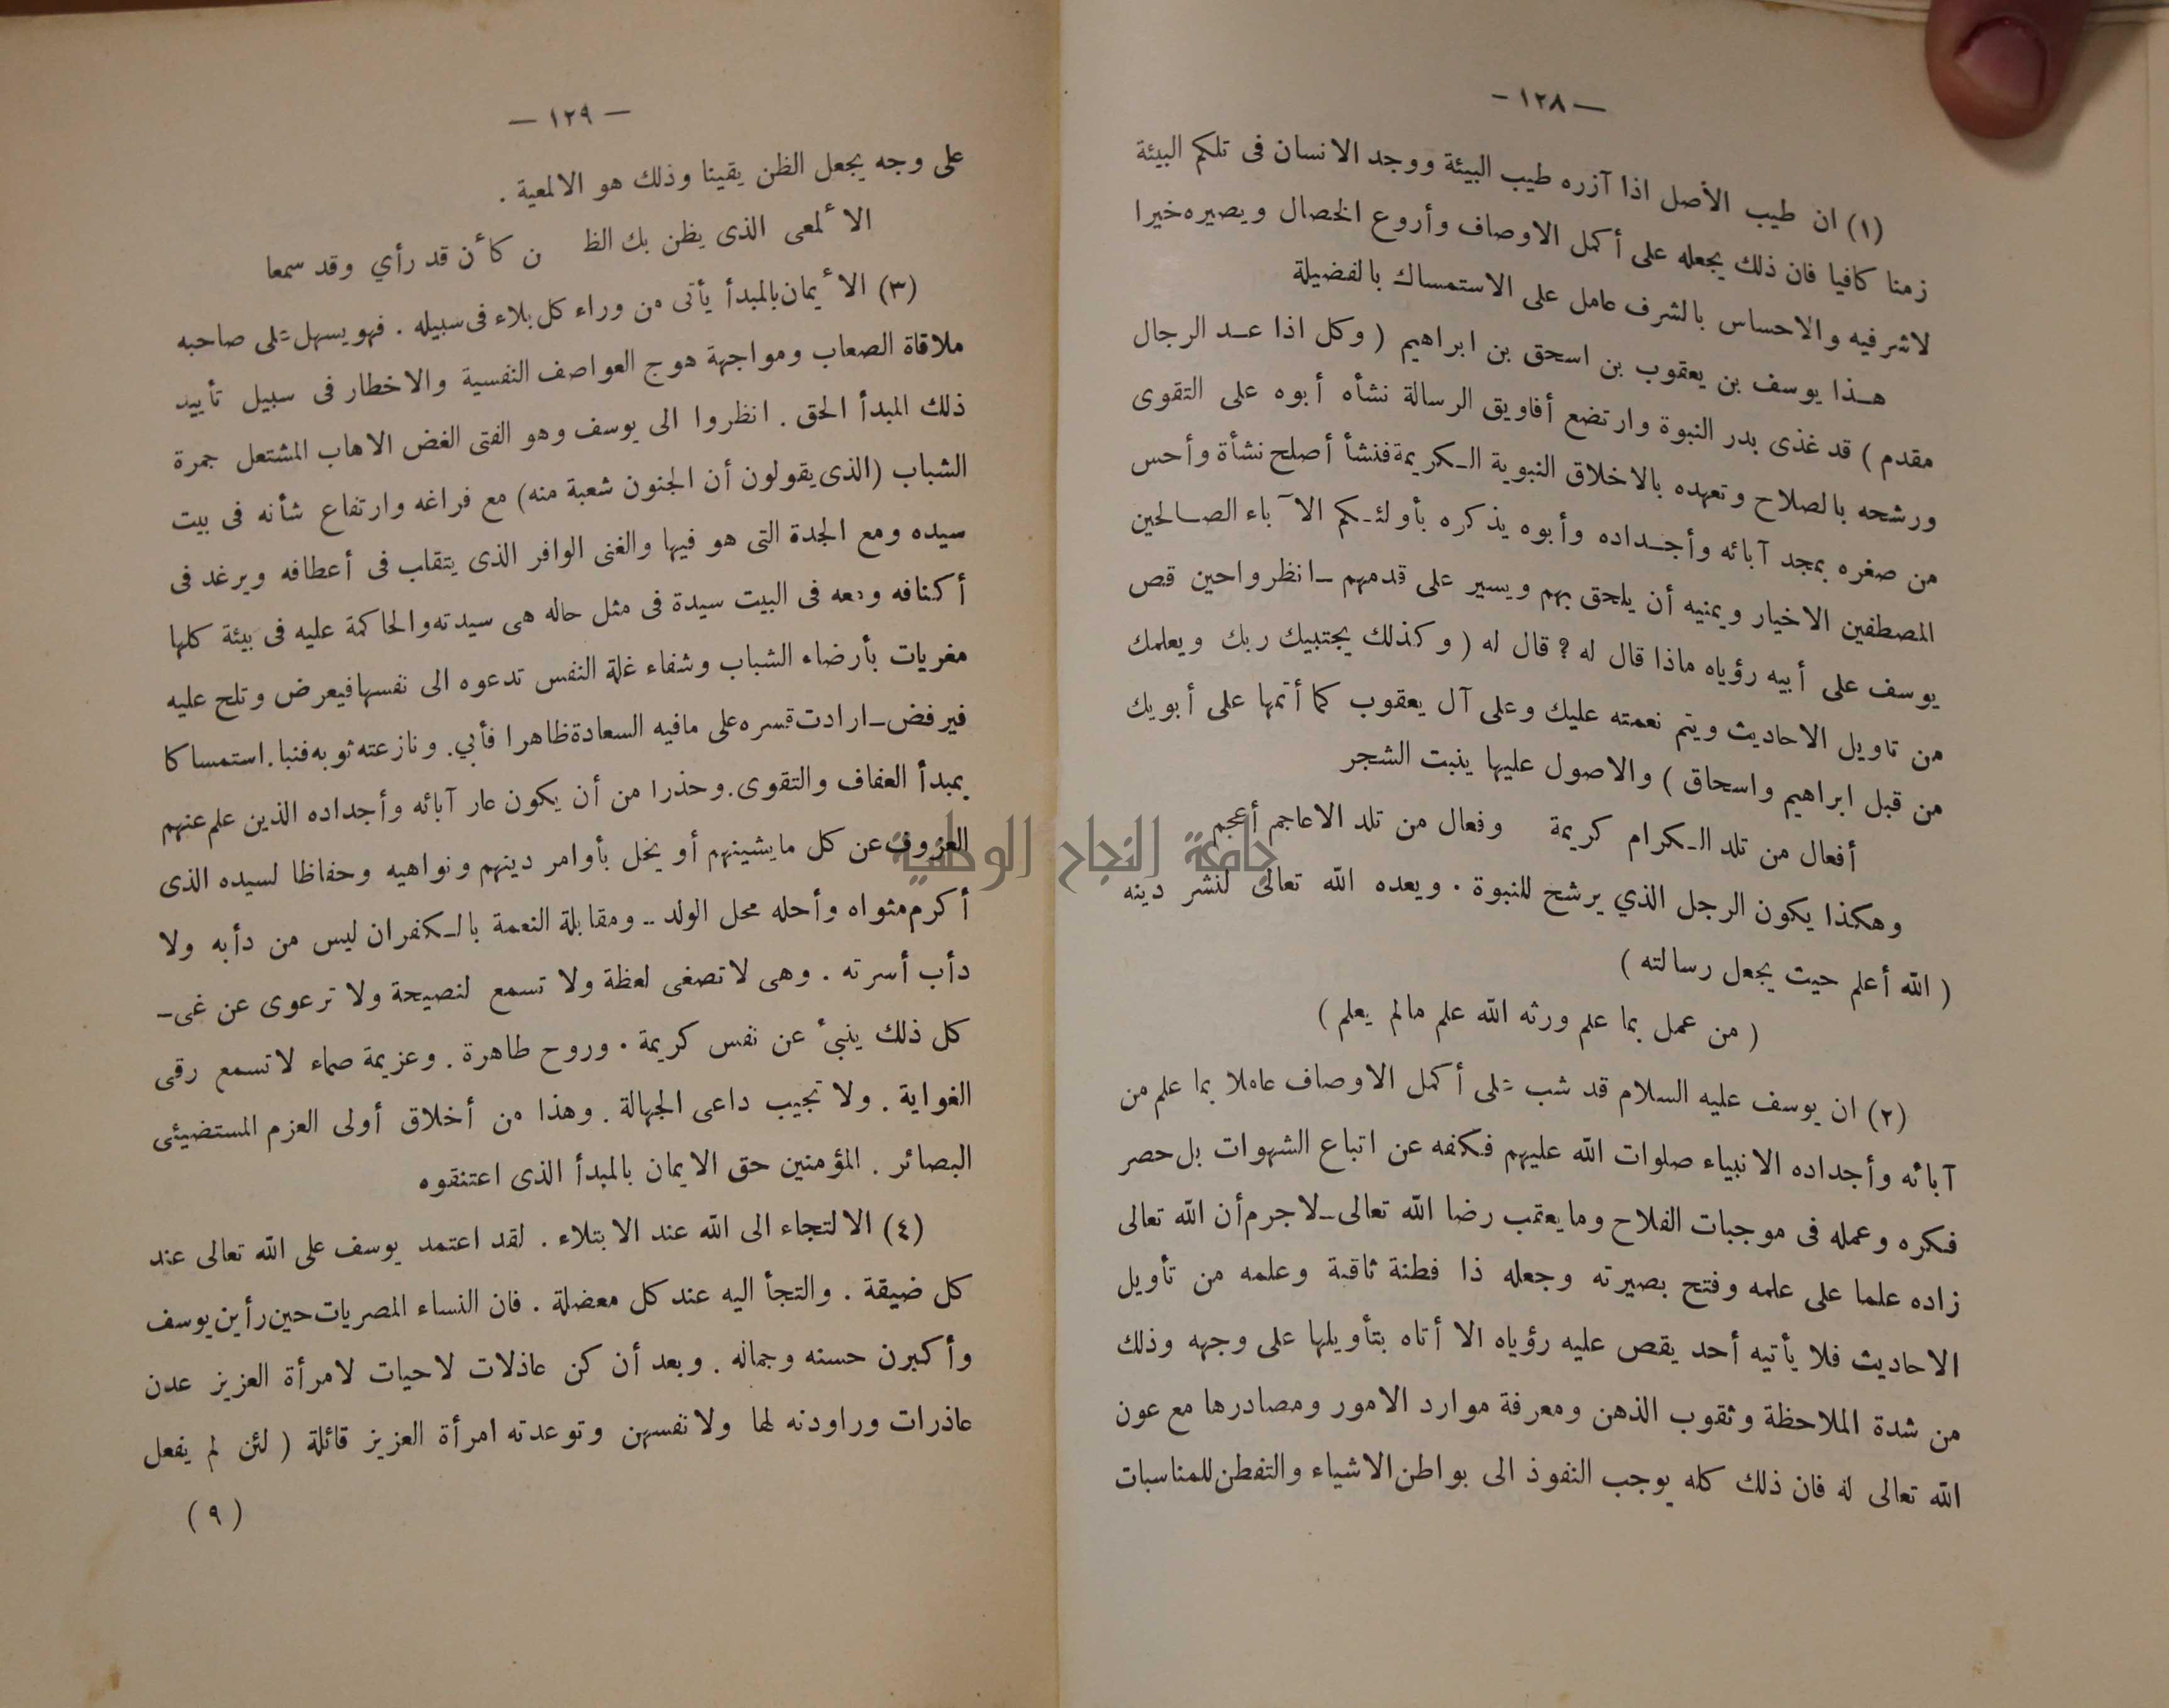 — ١٢٨ —
(١) ان طيب الأصل اذا آزره طيب البيئة ووجد الانسان فى تلكم البيئة
زمنا كافيا فان ذلك يجعله على أكمل الاوصاف وأروع الخصال ويصيره خيرا
لاشر فيه والاحساس بالشرف عامل على الاستمساك بالفضيلة
هـذا يوسف بن يعقوب بن اسحق بن ابراهيم ( وكل اذا عـد الرجال
مقدم ) قد غذى بدر النبوة وارتضع أفاويق الرسالة نشأه أبوه على التقوى
ورشحه بالصلاح وتعهده بالاخلاق النبوية الـكريمة فنشأ أصلح نشأة وأحس
من صغره بمجد آبائه وأجـداده وأبوه يذكره بأولئـكم الآباء الصـالحين
المصطفين الاخيار ويمنيه أن يلحق بهم ويسير على قدمهم ــ انظروا حين قص
يوسف على أبيه رؤياه ماذا قال له ؟ قال له ( وكذلك يجتبيك ربك ويعلمك
من تاويل الاحاديث ويتم نعمته عليك وعلى آل يعقوب كما أتمها على أبويك
من قبل ابراهيم واسحاق ) والاصول عليها ينبت الشجر
أفعال من تلد الـكرام كريمة وفعال من تلد الاعاجم أعجم
وهكذا يكون الرجل الذي يرشح للنبوة . ويعده الله تعالى لنشر دينه
( الله أعلم حيث يجعل رسالته )
( من عمل بما علم ورثه الله علم مالم يعلم )
(٢) ان يوسف عليه السلام قد شب على أكمل الاوصاف عاملا بما علم من
آبائه وأجداده الانبياء صلوات الله عليهم فكفه عن اتباع الشهوات بل حصر
فكره وعمله فى موجبات الفلاح وما يعتمب رضا الله تعالى ــ لاجرم أن الله تعالى
زاده علما على علمه وفتح بصيرته وجعله ذا فطنة ثاقبة وعلمه من تأويل
الاحاديث فلا يأتيه أحد يقص عليه رؤياه الا أتاه بتأويلها على وجهه وذلك
من شدة الملاحظة وثقوب الذهن ومعرفة موارد الامور ومصادرها مع عون
الله تعالى له فان ذلك كله يوجب النفوذ الى بواطن الاشياء والتفطن للمناسبات
— ١٢٩ —
على وجه يجعل الظن يقينا وذلك هو الالمعية .
الألمعى الذى يظن بك الظ ن كأن قد رأي وقد سمعا
(٣) الأيمان بالمبدأ يأتى من وراء كل بلاء فى سبيله . فهو يسهل على صاحبه
ملاقاة الصعاب ومواجهة هوج العواصف النفسية والاخطار فى سبيل تأييد
ذلك المبدأ الحق . انظروا الى يوسف وهو الفتى الغض الاهاب المشتعل جمرة
الشباب (الذى يقولون أن الجنون شعبة منه) مع فراغه وارتفاع شأنه فى بيت
سيده ومع الجدة التى هو فيها والغنى الوافر الذى يتقاب فى أعطافه ويرغد فى
أكنافه ومعه فى البيت سيدة فى مثل حاله هى سيدته والحاكمة عليه فى بيئة كلها
مغريات بأرضاء الشباب وشفاء غلة النفس تدعوه الى نفسها فيعرض وتلح عليه
فيرفض ــ ارادت قسره على مافيه السعادة ظاهرا فأبي . ونازعته ثوبه فنبا . استمساكا
بمبدأ العفاف والتقوى . وحذرا من أن يكون عار آبائه وأجداده الذين علم عنهم
العزوف عن كل مايشينهم أو يخل بأوامر دينهم ونواهيه وحفاظا لسيده الذى
أكرم مثواه وأحله محل الولد .. ومقابلة النعمة بالـكفران ليس من دأبه ولا
دأب أسرته . وهى لاتصغى لعظة ولا تسمع لنصيحة ولا ترعوى عن غى ــ
كل ذلك ينبئ عن نفس كريمة . وروح طاهرة . وعزيمة صماء لاتسمع رقى
الغواية . ولا تجيب داعى الجهالة . وهذا من أخلاق أولى العزم المستضيئى
البصائر . المؤمنين حق الايمان بالمبدأ الذى اعتنقوه
(٤) الالتجاء الى الله عند الابتلاء . لقد اعتمد يوسف على الله تعالى عند
كل ضيقة . والتجأ اليه عند كل معضلة . فان النساء المصريات حين رأين يوسف
وأكبرن حسنه وجماله . وبعد أن كن عاذلات لاحيات لامرأة العزيز عدن
عاذرات وراودنه لها ولانفسهن وتوعدته امرأة العزيز قائلة ( لئن لم يفعل
( ٩ )
جامعة النجاح الوطنية